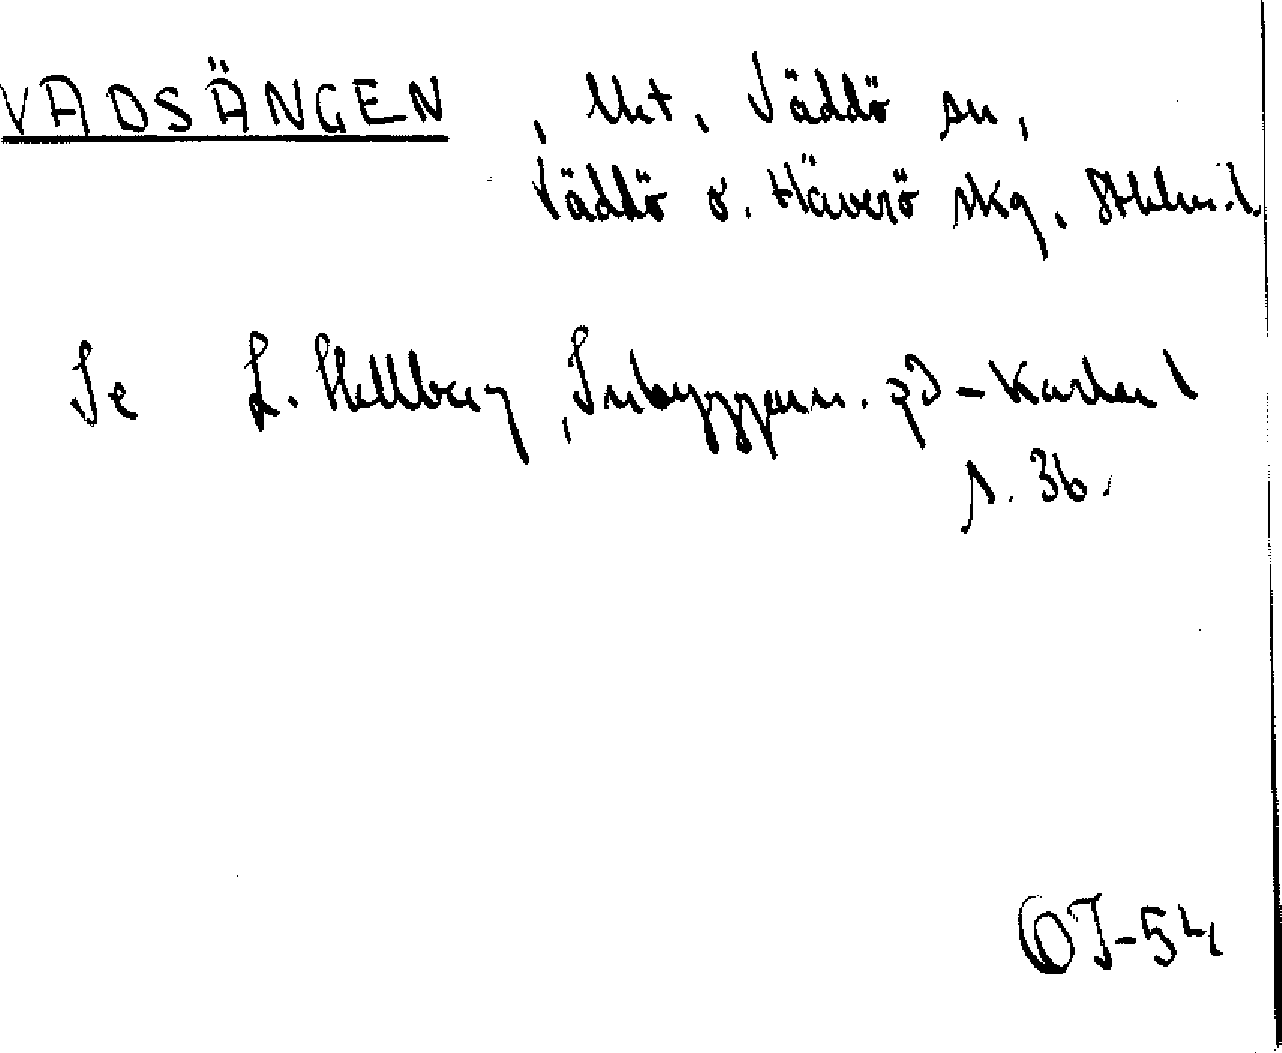 VADSÄNGEN, Ut. Väddö sn,
Väddö o. Häverö skg. Sthlms l.
Se L. Hellberg, Inbyggarn. på -karlar
s. 36.
OJ-54